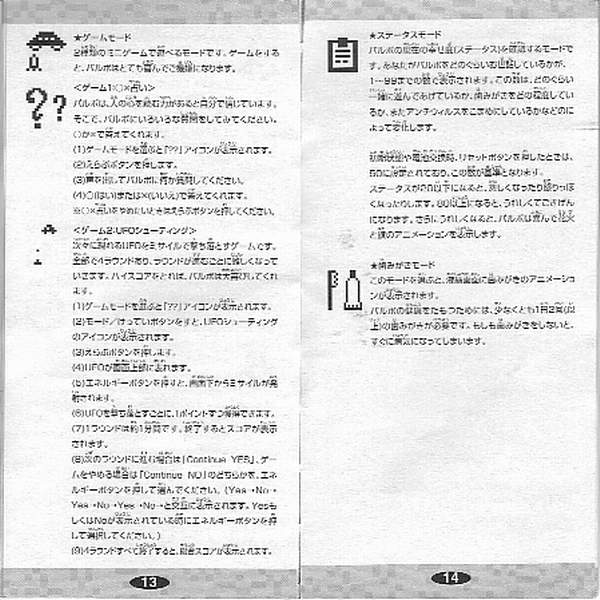 ★ゲームモード
2種類のミニゲームで遊べるモードです。ゲームをする
と、パルボはとても喜んでご機嫌になります。
<ゲーム1:○×占い>
パルボは、人の心を読む力があると自分で信じています。
そこで、パルボにいろいろな質問をしてみてください。
○か×で答えてくれます。
(1)ゲームモードを選ぶと「??」アイコンが表示されます。
(2)えらぶボタンを押します。
(3)声を出してパルボに何か質問してください。
(4)○(はい)または×(いいえ)で答えてくれます。
※○×占いをやめたいときはえらぶボタンを押してください。
<ゲーム2:UFOシューティング>
次々に現れるUFOをミサイルで撃ち落とすゲームです。
全部で4ラウンドあり、ラウンドが進むごとに難しくなって
いきます。ハイスコアをとれば、パルボは大喜びしてくれ
ます。
(1)ゲームモードを選ぶと「??」アイコンが表示されます。
(2)モード/けっていボタンをすと、UFOシューティング
のアイコンが表示されます。
(3)えらぶボタンを押します。
(4)UFOが画面上部に表れます。
(5)エネルギーボタンを押すと、画面下からミサイルが発
射されます。
(6)UFOを撃ち落とすごとに、1ポイントずつ獲得できます。
(7)1ラウンドは約1分間です。終了するとスコアが表示
されます。
(8)次のラウンドに進む場合は「Continue YES」、ゲー
ムをやめる場合は「Continue NO」のどちらかを、エネ
ルギーボタンを押して選んでください。(Yes→No→
Yes→No→Yes→No→と交互に表示されます。Yesも
しくはNoが表示されている時にエネルギーボタンを押
して選択してください。)
(9)4ラウンドすべて終了すると、総合スコアが表示されます。
13
★ステータスモード
パルボの現在の幸せ度(ステータス)を確認するモードで
す。あなたがパルボをどのぐらいお世話しているかが、
1〜99までの数で表示されます。この数は、どのぐらい
一緒に遊んであげているか、歯みがきをどの程度してい
るか、またアンチウィルスをこまめにしているかなどのに
よって変化します。
初期状態や電池交換時、リセットボタンを押したときは、
50に設定されており、この数が基準となります。
ステータスが20以下になると、悲しくなったり怒りっぽ
くなったりします。80以上になると、うれしくてごきげん
になります。さらにうれしくなると、パルボは喜んで花火
と鏡のアニメーションを表示します。
★歯みがきモード
このモードを選ぶと、液晶画面に歯みがきのアニメーショ
ンが表示されます。
パルボの健康をたもつためには、少なくとも1日2回(以
上)の歯みがきが必要です。もしも歯みがきをしないと、
すぐに病気になってしまいます。
14